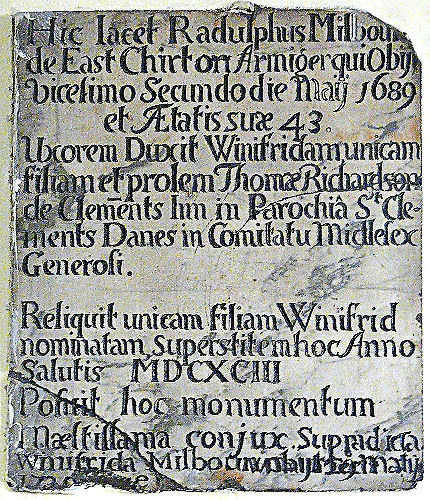 Hic Iacet Radulphus Milbourn
de East Chirton Armiger qui Obijt
vicesimo Secundo die Maij 1689
et Ætatis suæ 43.
Uxorem Duxit Winifridam unicam
filiam et prolem Thomæ Richardson
de Clements Inn in Parochiâ St. Cle-
ments Danes in Comitatu Midlesex
Generosi.
Reliquit unicam filiam Winifrid
nominatam Superstitem hoc Anno
Salutis MDCXCIII
Posuit hoc monumentum
Mæstissama conjux Supradicta
Winifrida Milbourn